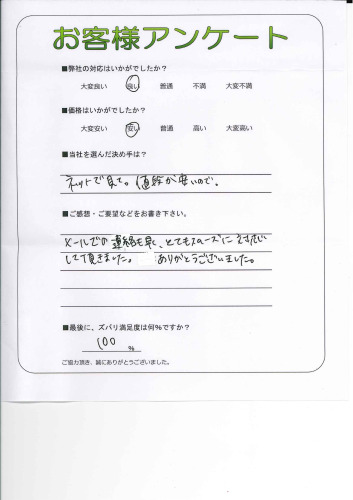 お客様アンケート
■弊社の対応はいかがでしたか？
大変良い 良い 普通 不満 大変不満
■価格はいかがでしたか？
大変安い 安い 普通 高い 大変高い
■当社を選んだ決め手は？
ネットで見て。値段が安いので。
■ご感想・ご要望などをお書き下さい。
メールでの連絡も早く、とてもスムーズに対応
して頂きました。 ありがとうございました。
■最後に、ズバリ満足度は何％ですか？
100 %
ご協力頂き、誠にありがとうございました。